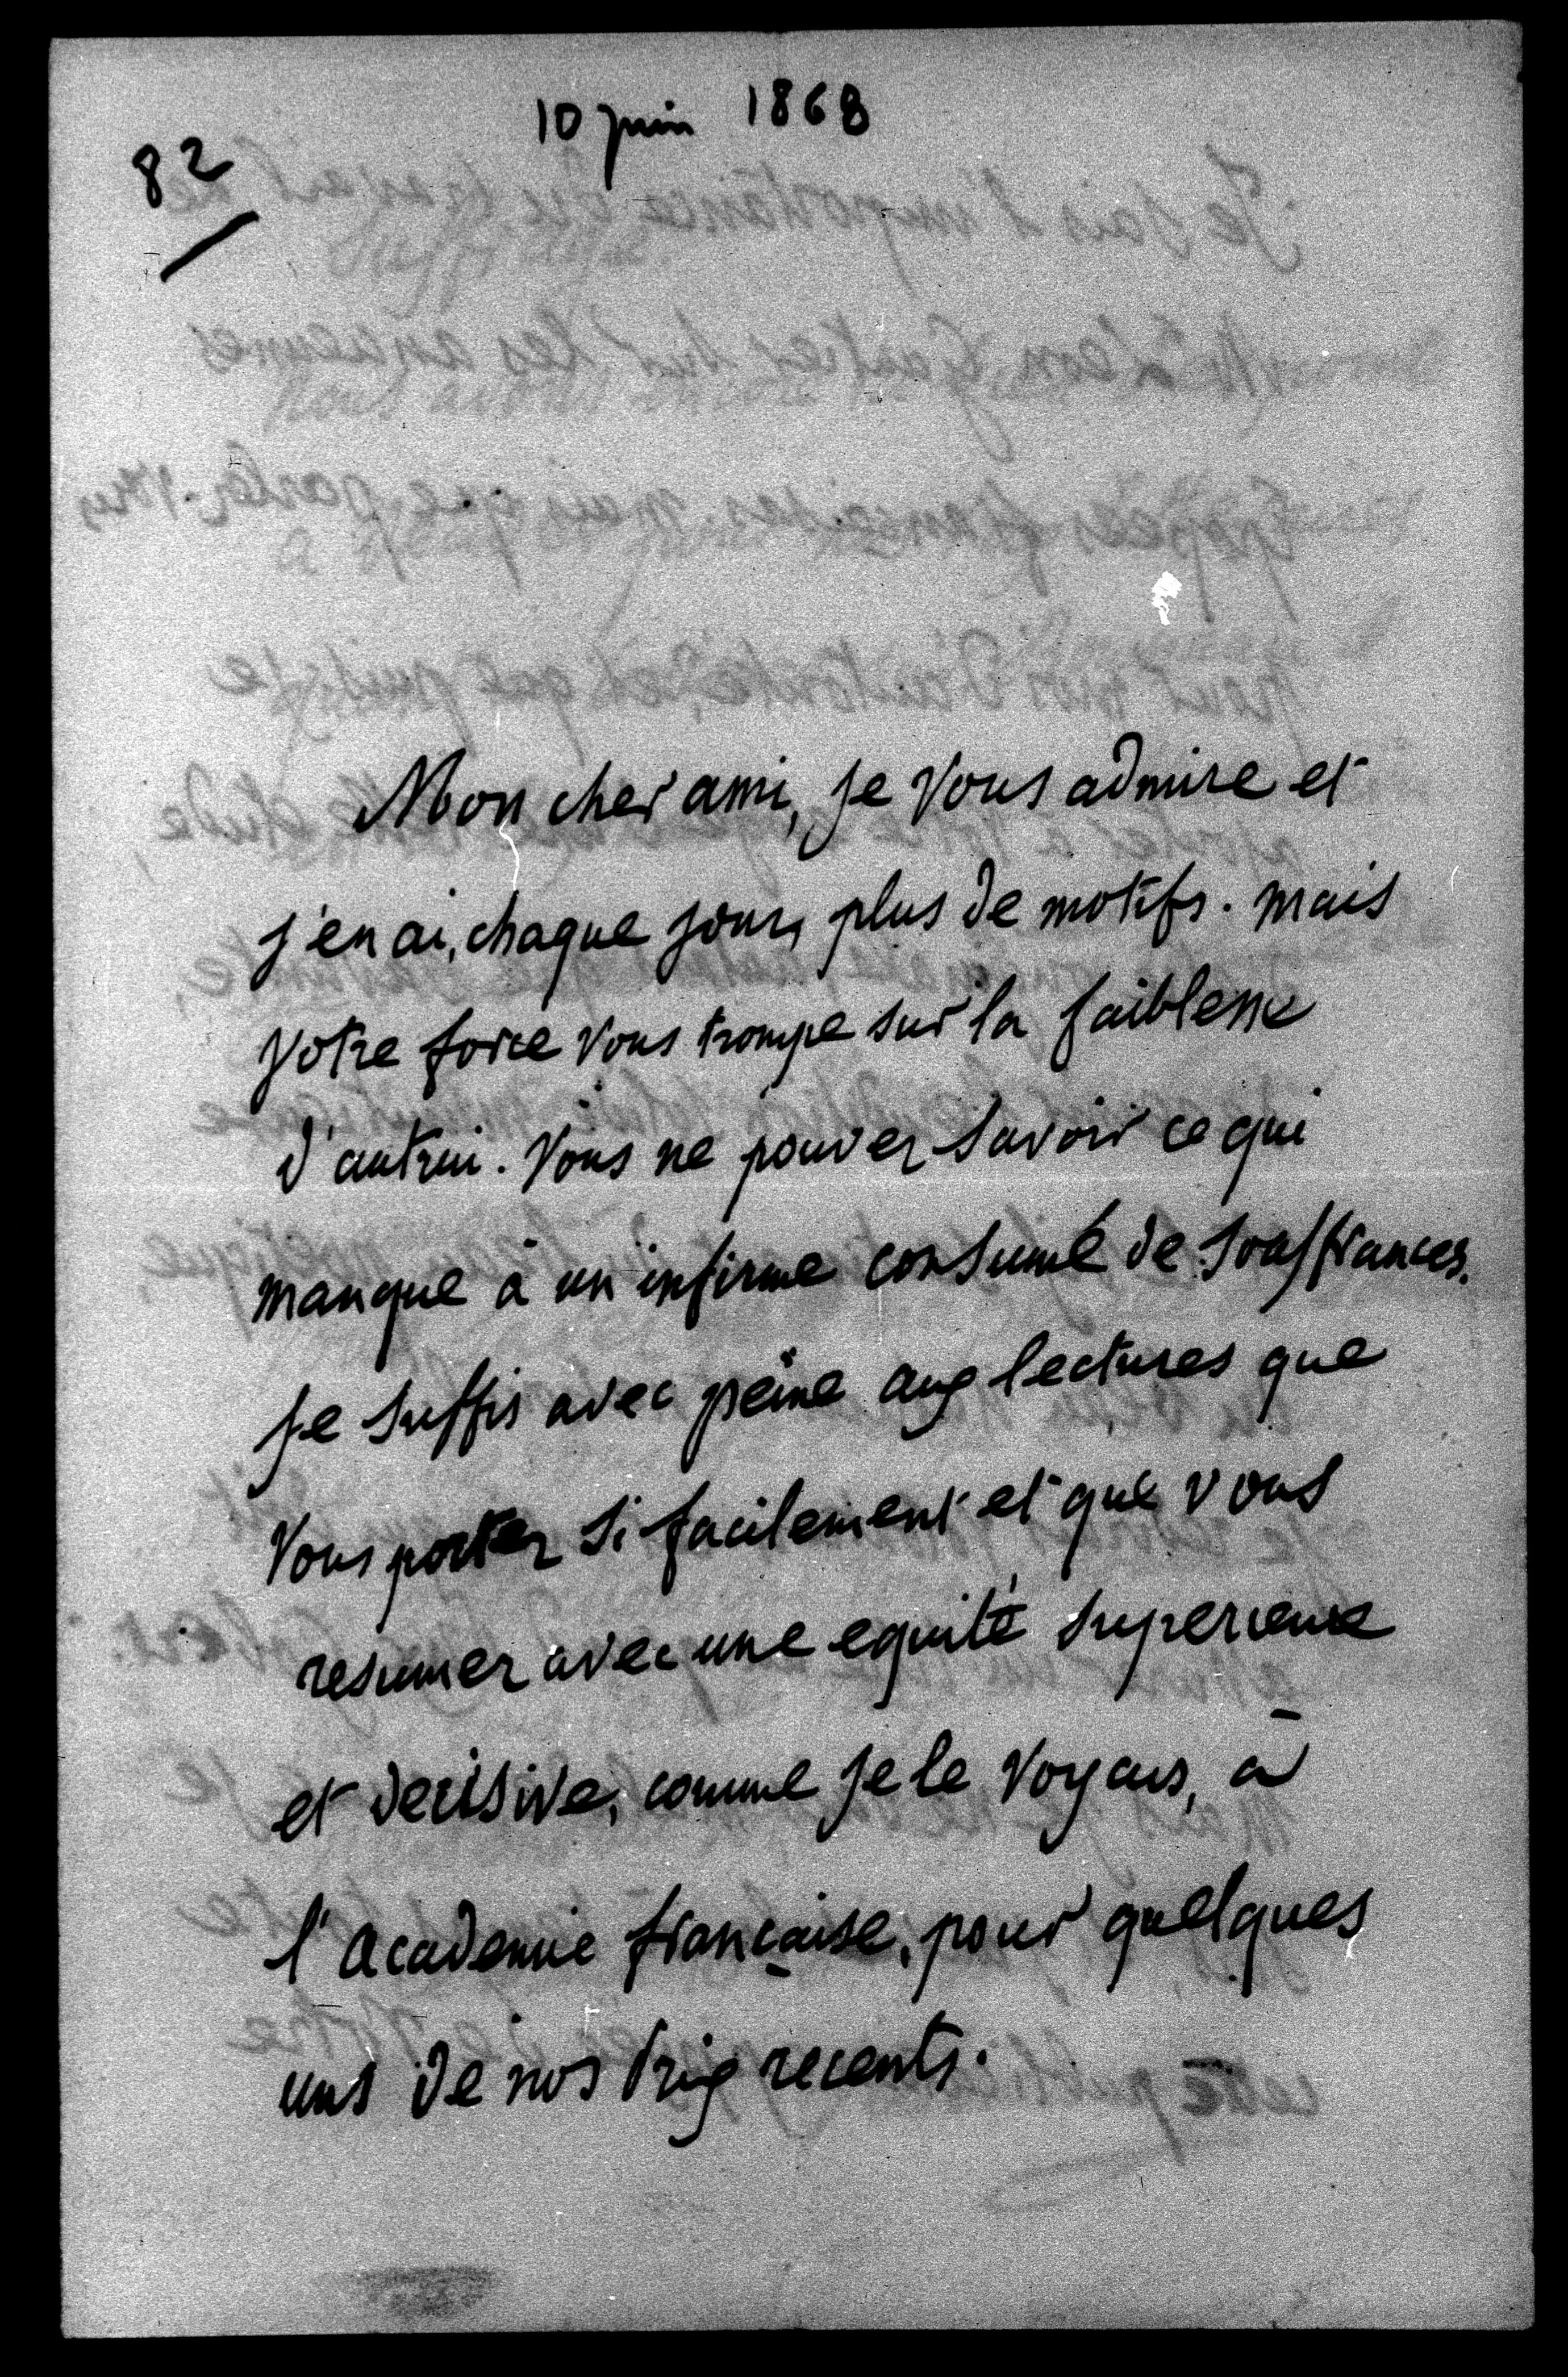 10 juin 1868
82
Mon cher ami, je vous admire et
j'en ai, chaque jour, plus de motifs. mais
votre force vous trompe sur la faiblesse
d'autrui. Vous ne pouvez savoir ce qui
manque à un infirme consumé de souffrances.
je suffis avec peine aux lectures que
vous portez si facilement et que vous
resumez avec une equité superieure
et decisive, comme je le voyais, a
l'academie française, pour quelques
uns de nos Prix recents.